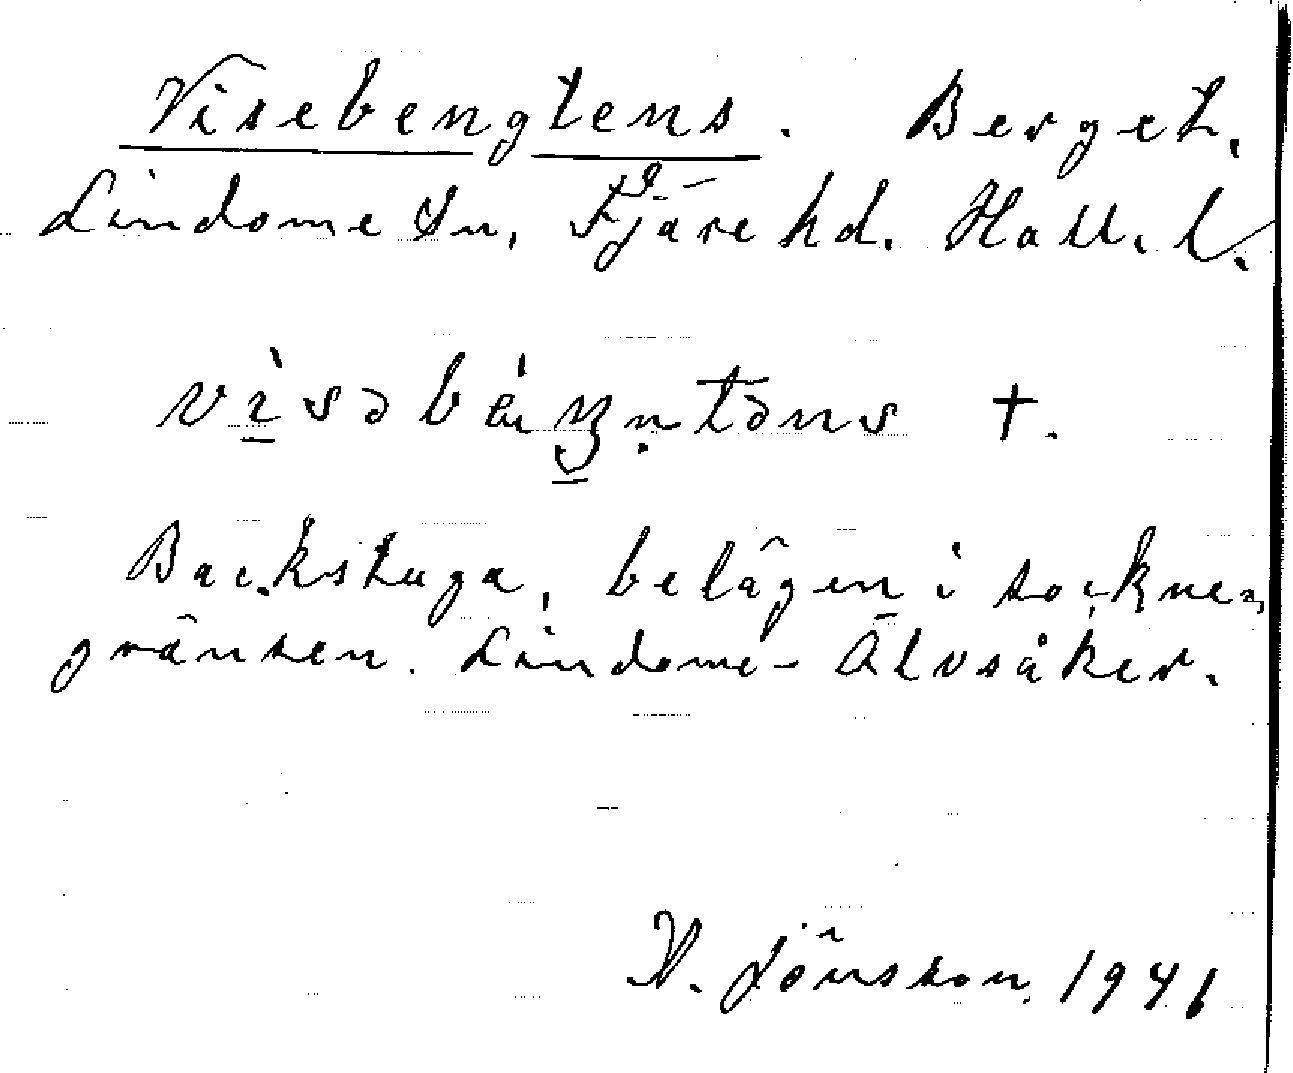 Visebengtens. Berget.
Lindome sn, Fjäre hd. Hall. l.
vìsəbéŋn̥təns †.
Backstuga, belägen i sockne-
gränsen. Lindome - Älvsåker.
N. Jönsson. 1941